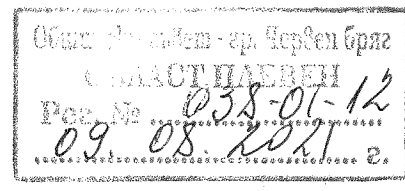 Общински съвет - гр. Червен бряг
ОБЛАСТ ПЛЕВЕН
Рег. № 038-01-12
09. 08. 2021 г.